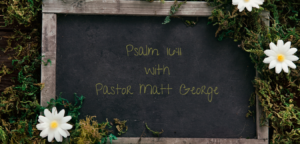 Psalm
with
Pastor Matt George